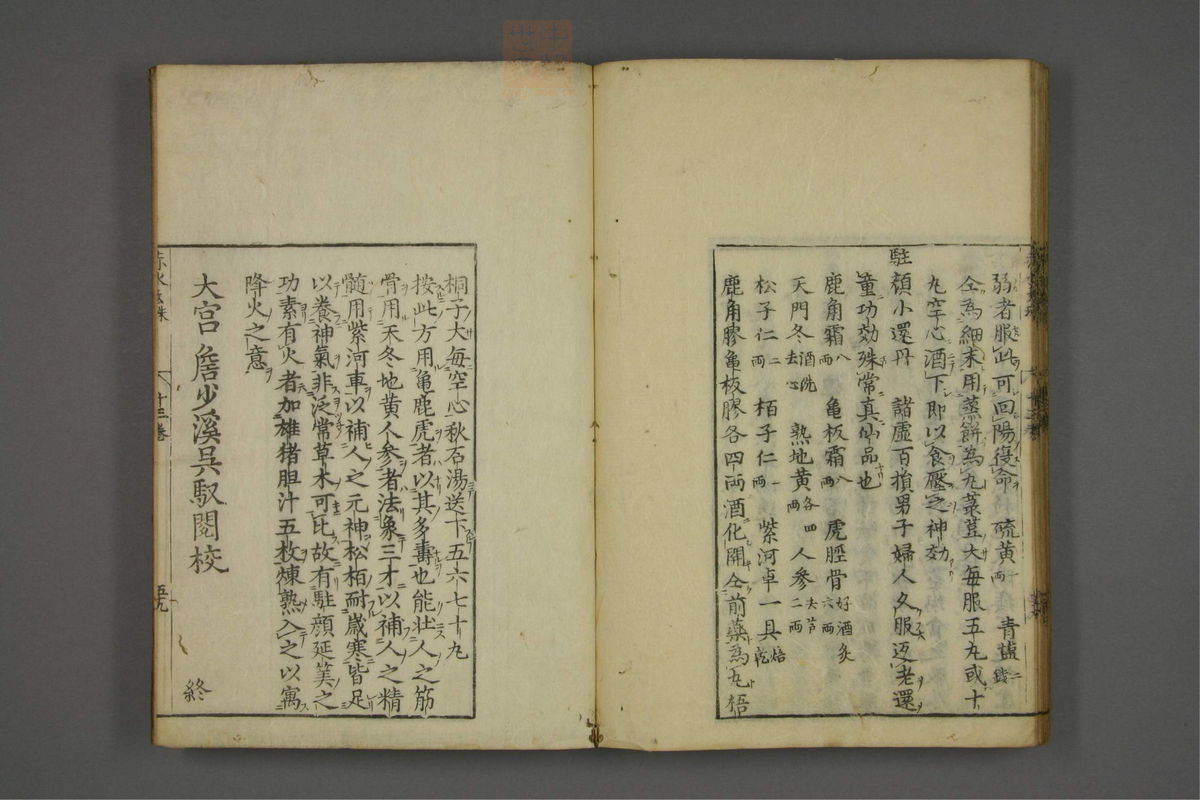 弱者服此可回陽復命 硫黄一両 青塩二銭
仝為細末用蒸餅為丸菉荳大每服五丸或十
丸空心酒下即以食壓之神効
駐顏小還丹 諸虛百損男子婦人久服返老還
童功効殊常真仙品也
鹿角霜八両 亀板霜八両 虎脛骨好酒炙六両
天門冬酒洗去心 熟地黄各四両 人参去芦二両
松子仁二両 栢子仁一両 紫河車一具焙乾
鹿角膠亀板膠各四両酒化開仝前藥為丸梧
桐子大每空心秋石湯送下五六七十丸
按此方用亀鹿虎者以其多壽也能壮人之筋
骨用天冬地黄人參者法象三才以補人之精
髓用紫河車以補人之元神松栢耐歲寒皆足
以養神氣非泛常草木可比故有駐顏延筭之
功素有火者加雄猪胆汁五枚煉熟入之以寓
降火之意
大宫詹少溪呉馭閲校
終
赤水玄珠 十三卷